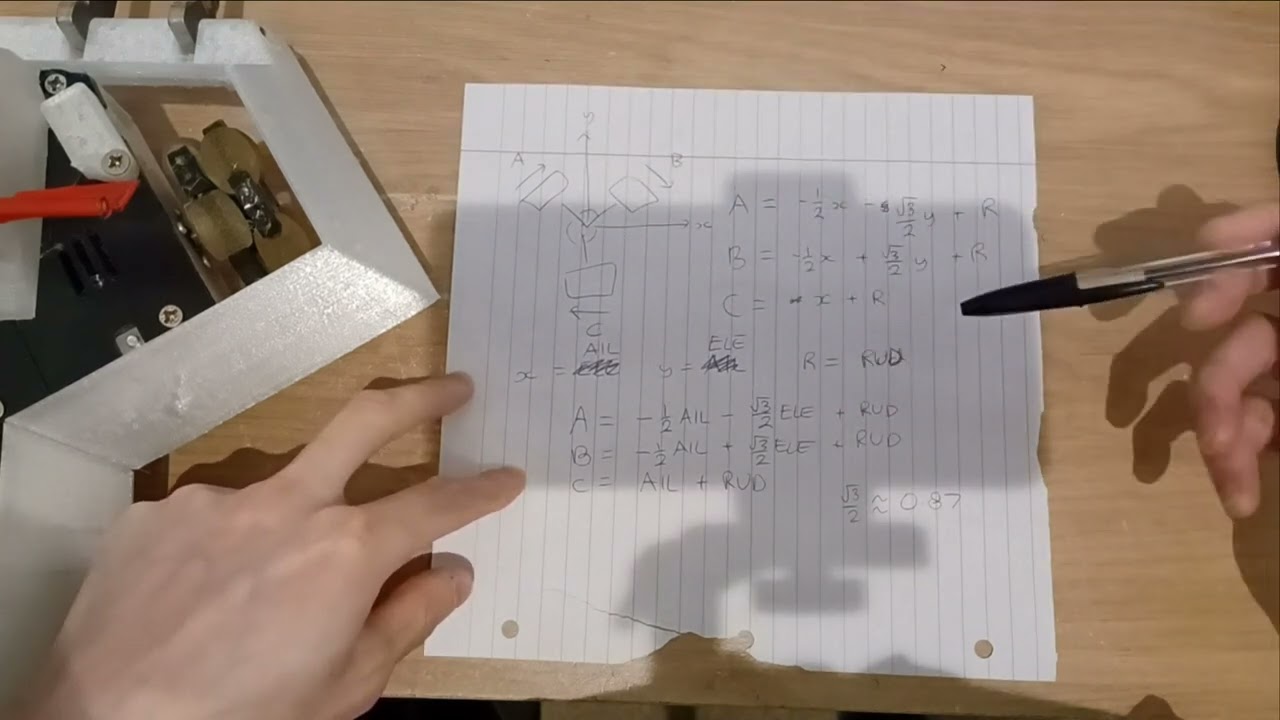 y
A B
x
C
A = -½x - √3/2 y + R
B = -½x + √3/2 y + R
C = x + R
x = AIL y = ELE R = RUD
A = -½ AIL - √3/2 ELE + RUD
B = -½ AIL + √3/2 ELE + RUD
C = AIL + RUD
√3/2 ≈ 0.87